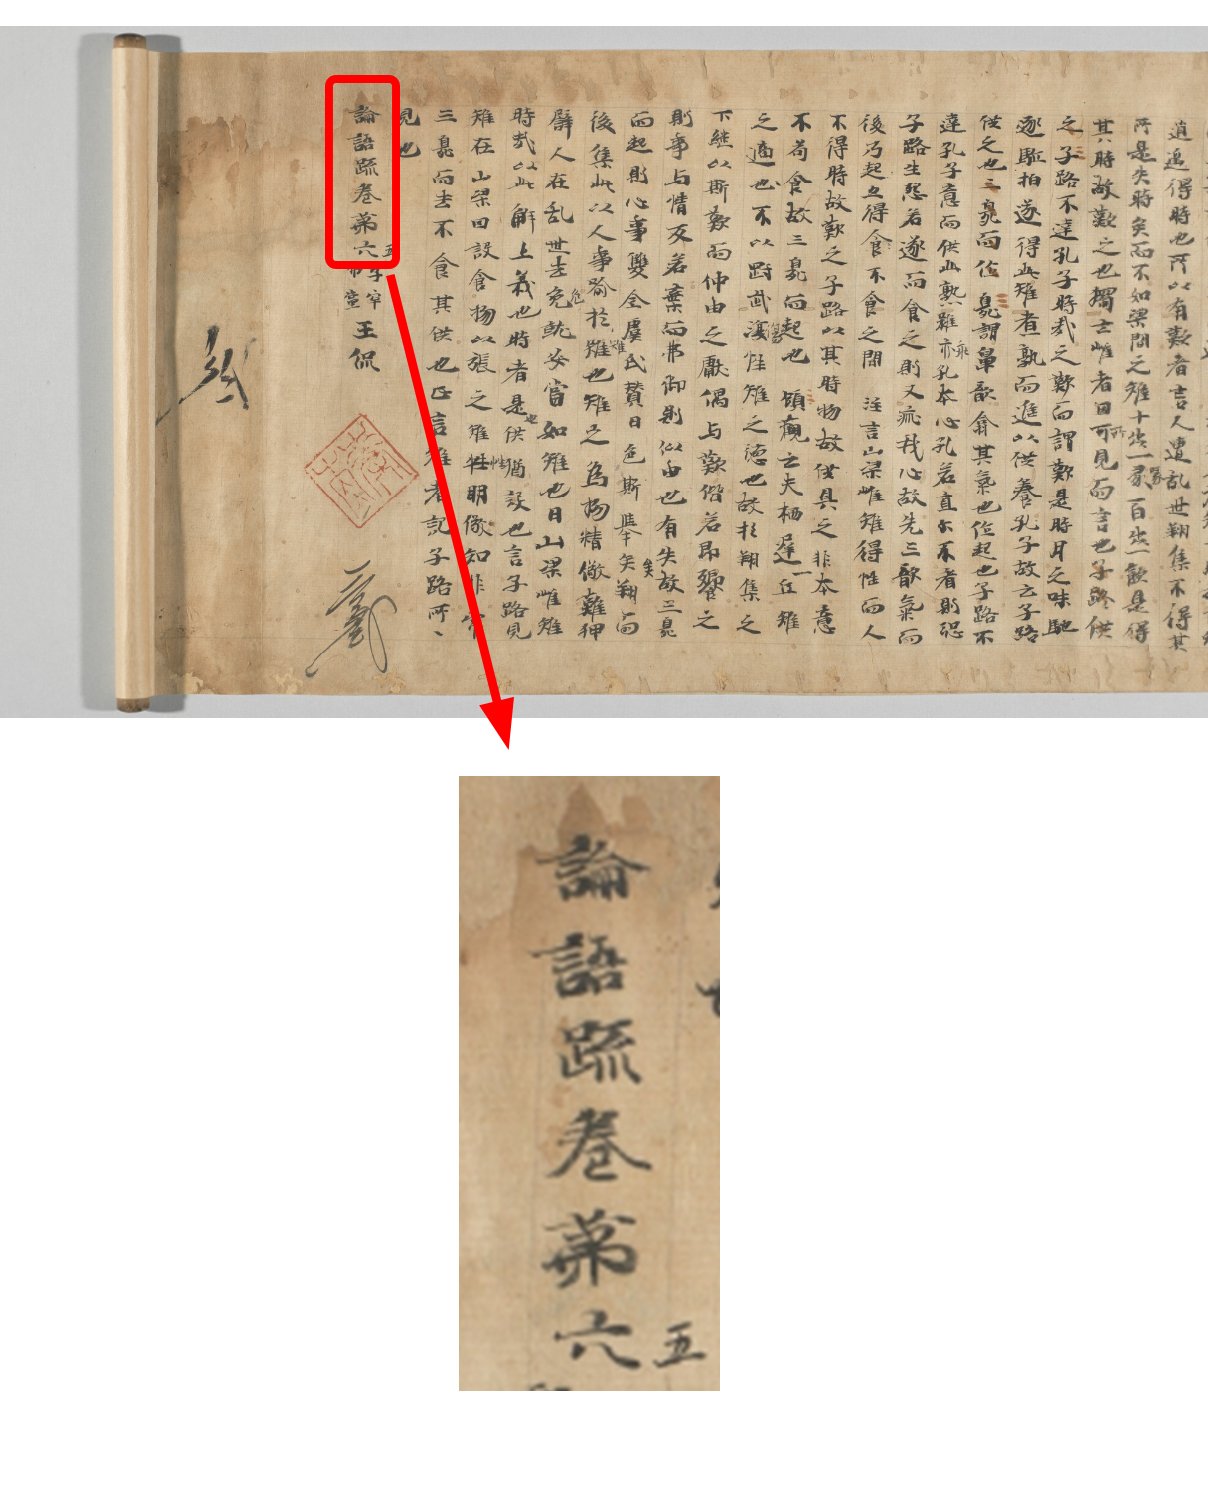 逍遥得時也所以有歎者言人遭乱世翔集不得其
所是失時矣而不如梁間之雉十歩一啄百歩一飲是得
其時故歎之也獨云雌者因所可見而言也子路供
之子路不達孔子時哉之歎而謂歎是時月之味馳
逐駈拍遂得此雉煮熟而進以供養孔子故云子路
供之也三臭而作臭謂鼻歆翕其氣也作起也子路不
達孔子意而供此熟雉乖孔子本心孔若直尓不食者則恐
子路生怨若遂而食之則又乖我心故先三歆氣而
後乃起亦得食不食之間 注言山梁雌雉得性而人
不得時故歎之子路以其時物故供具之非本意
不苟食故三臭而起也 頋歡云夫栖遅一丘雉
之適也不以剛武傷性雉之徳也故於翔集之
下継以斯歎而仲由之獻偶与歎偕若即饗之
則事与情反若棄而弗御則似由也有失故三臭
而起則心事雙全虞氏賛曰色斯舉矣翔而
後集此以人事喩於雉也雉之為物精儆難狎
譬人在乱世去危就安當如雉也曰山梁雌雉
時哉以此解上義也時者是也供猶設也言子路見
雉在山梁因設食物以張之雉性明儆知非常
三臭而去不食其供也正言雌者記子路所
見也
論語疏巻第六 王侃
五
論語疏巻第六